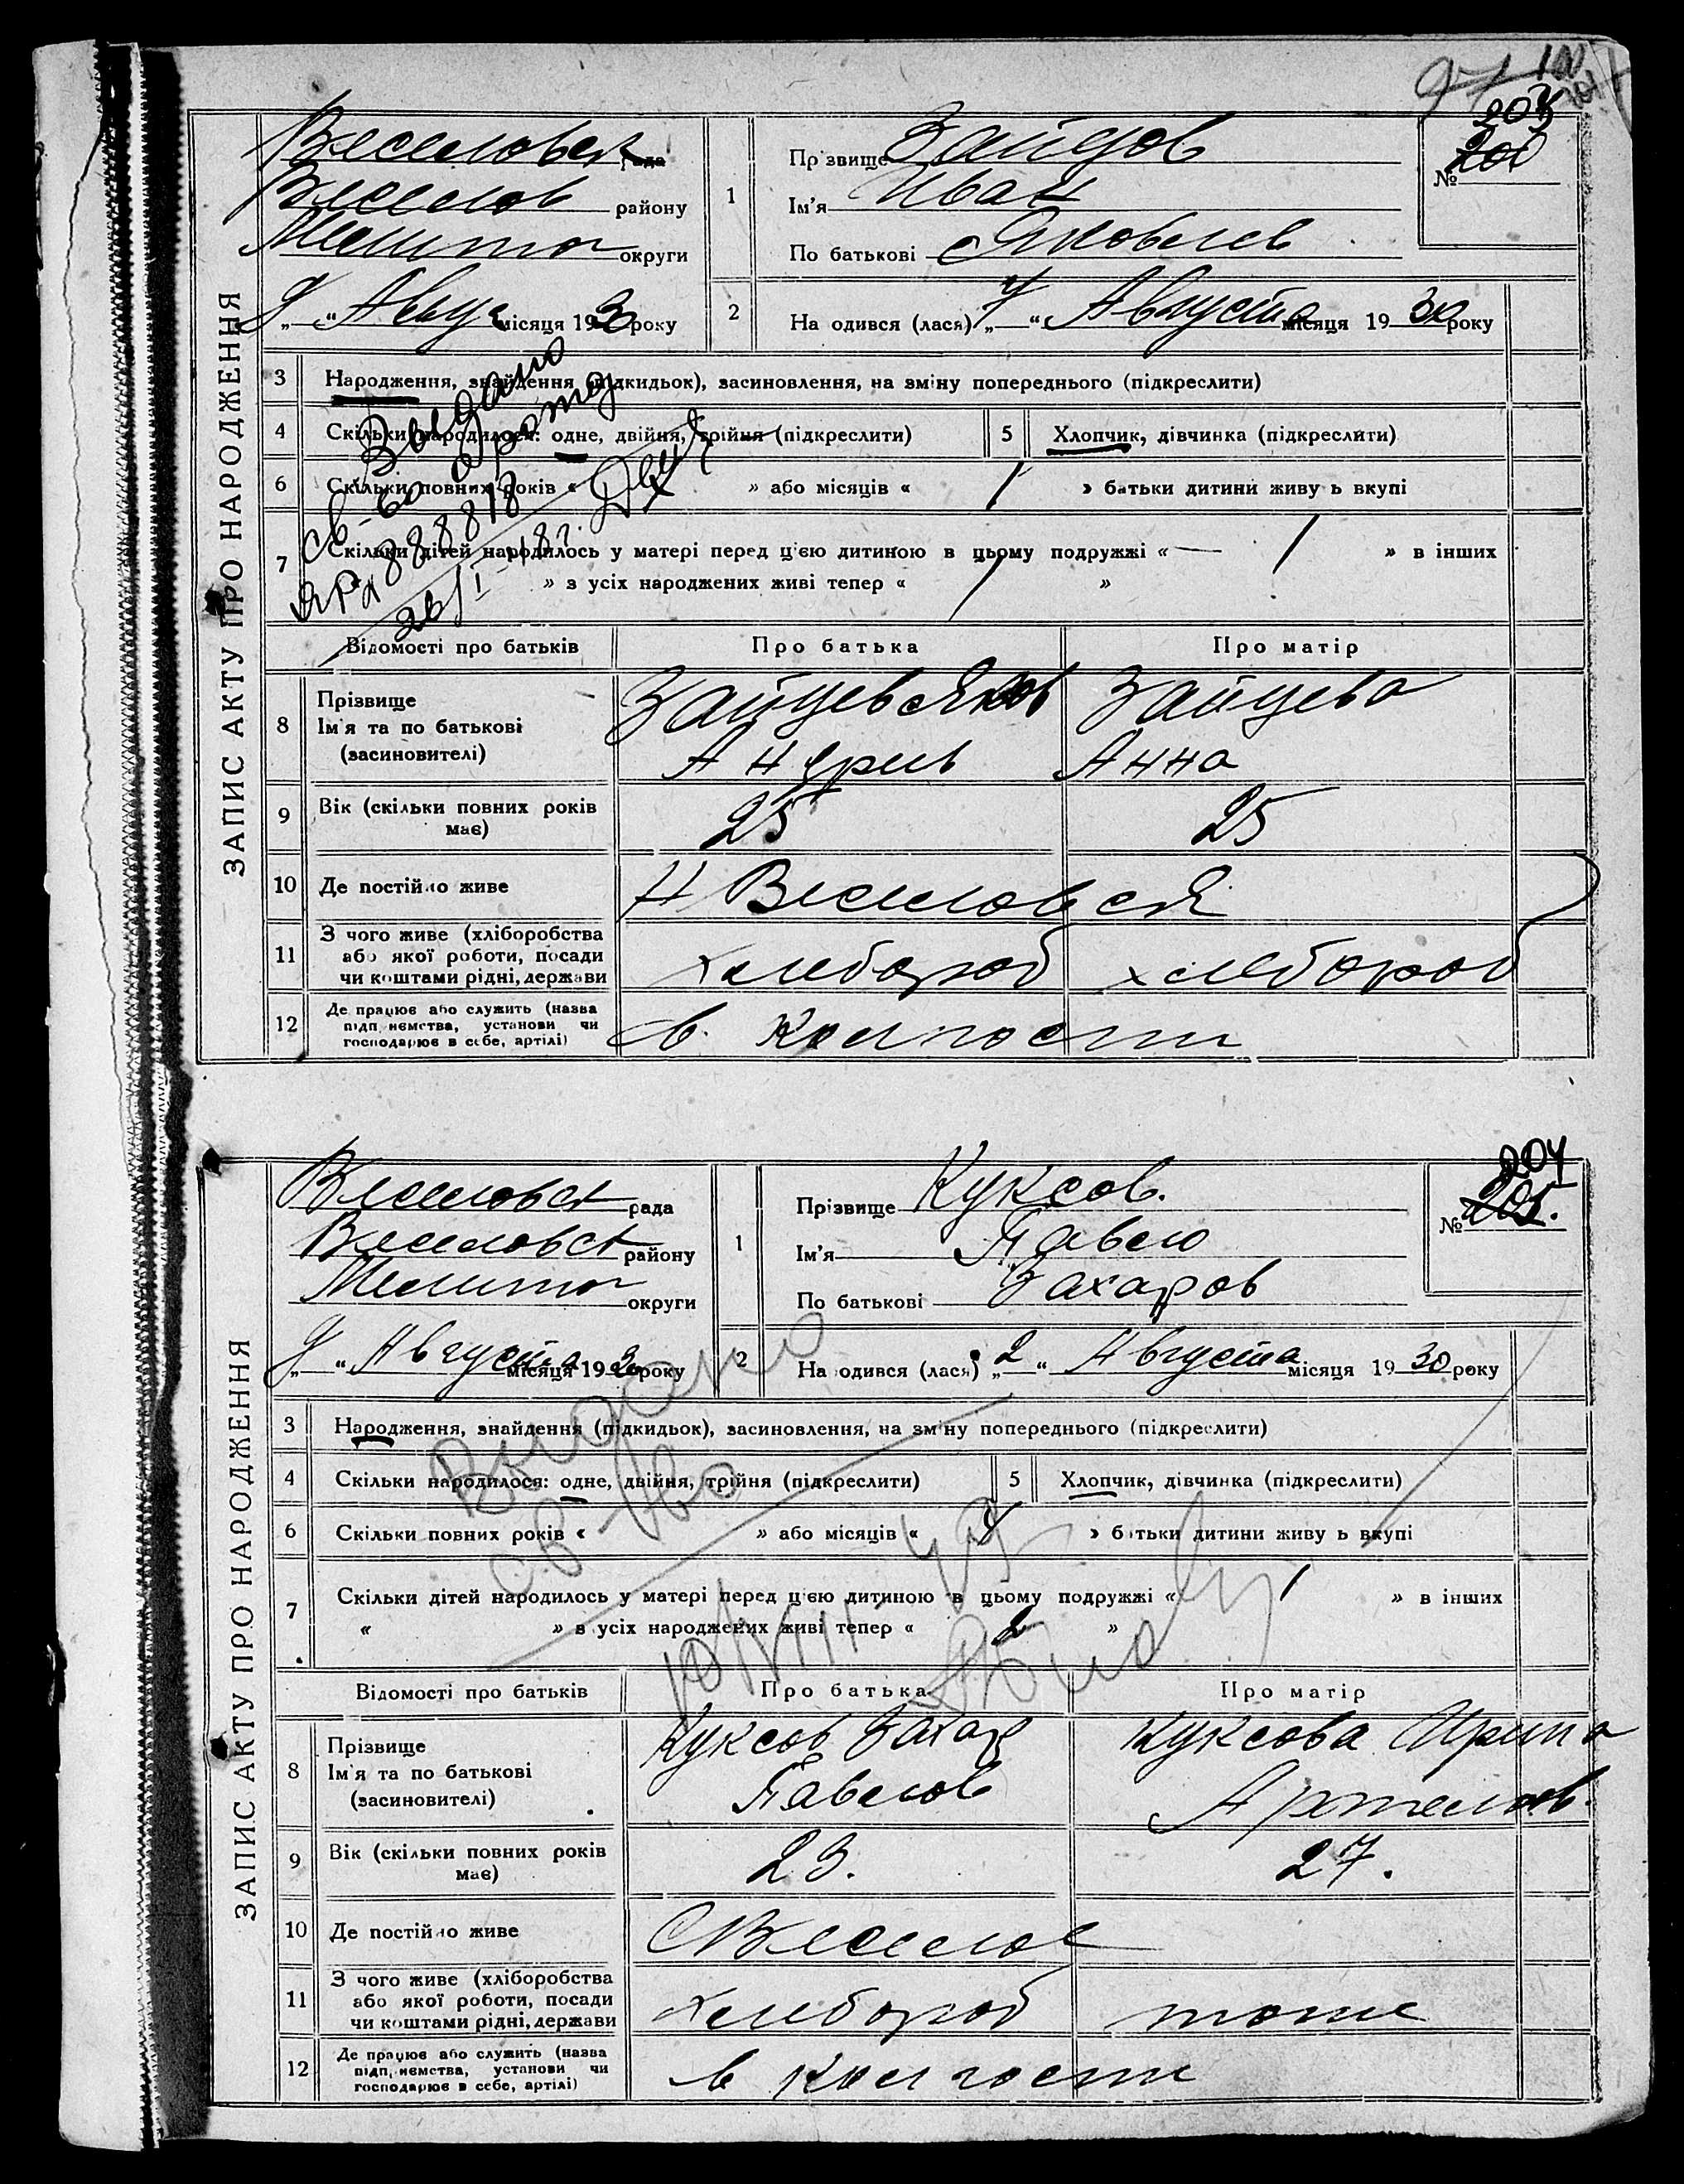 ЗАПИС АКТУ ПРО НАРОДЖЕННЯ
203
№
Веселовск рада
Веселов району
Мелитоп округи
„9“ Авгус місяця 1930 року
1
Прізвище Зайцов
Ім'я Иван
По батькові Яковлев
2 На одився (лася) „7“ Августа місяця 1930 року
3 Народження, знайдення (підкидьок), засиновлення, на зміну попереднього (підкреслити)
4 Скільки народилося: одне, двійня, трійня (підкреслити)
5 Хлопчик, дівчинка (підкреслити)
6 Скільки повних років « » або місяців « / » батьки дитини живуть вкупі
7 Скільки дітей народилось у матері перед цією дитиною в цьому подружжі « — / » в інших
» з усіх народжених живі тепер « / »
св-во
888818
Відомості про батьків Про батька Про матір
8 Прізвище
Ім'я та по батькові
(засновителі)
Зайцев Яков
Андрив
Зайцева
Анна
9 Вік (скільки повних років має) 25 25
10 Де постійно живе Н Веселовск
11 З чого живе (хліборобства
або якої роботи, посади
чи коштами рідні, держави
хлебороб хлебороб
12 Де працює або служить (назва
підприємства, установи чи
господарює в себе, артілі)
в Колгости
ЗАПИС АКТУ ПРО НАРОДЖЕННЯ
204
№ 205.
Веселовск рада
Веселовск району
Мелитоп округи
„9“ Августа місяця 1930 року
1
Прізвище Куксов.
Ім'я Павело
По батькові Захаров
2 На одився (лася) „2“ Августа місяця 1930 року
3 Народження, знайдення (підкидьок), засиновлення, на зміну попереднього (підкреслити)
4 Скільки народилося: одне, двійня, трійня (підкреслити)
5 Хлопчик, дівчинка (підкреслити)
6 Скільки повних років « » або місяців « » батьки дитини живуть вкупі
7 Скільки дітей народилось у матері перед цією дитиною в цьому подружжі « 1 » в інших
« » в усіх народжених живі тепер « 2 »
Видано
св-во
Відомості про батьків Про батька Про матір
8 Прізвище
Ім'я та по батькові
(засиновителі)
Куксов Захар
Павелов
Куксова Ирина
Артемов.
9 Вік (скільки повних років має) 23. 27.
10 Де постійно живе С Веселое
11 З чого живе (хліборобства
або якої роботи, посади
чи коштами рідні, держави
хлебороб тоже
12 Де працює або служить (назва
підприємства, установи чи
господарює в себе, артілі)
в колгости